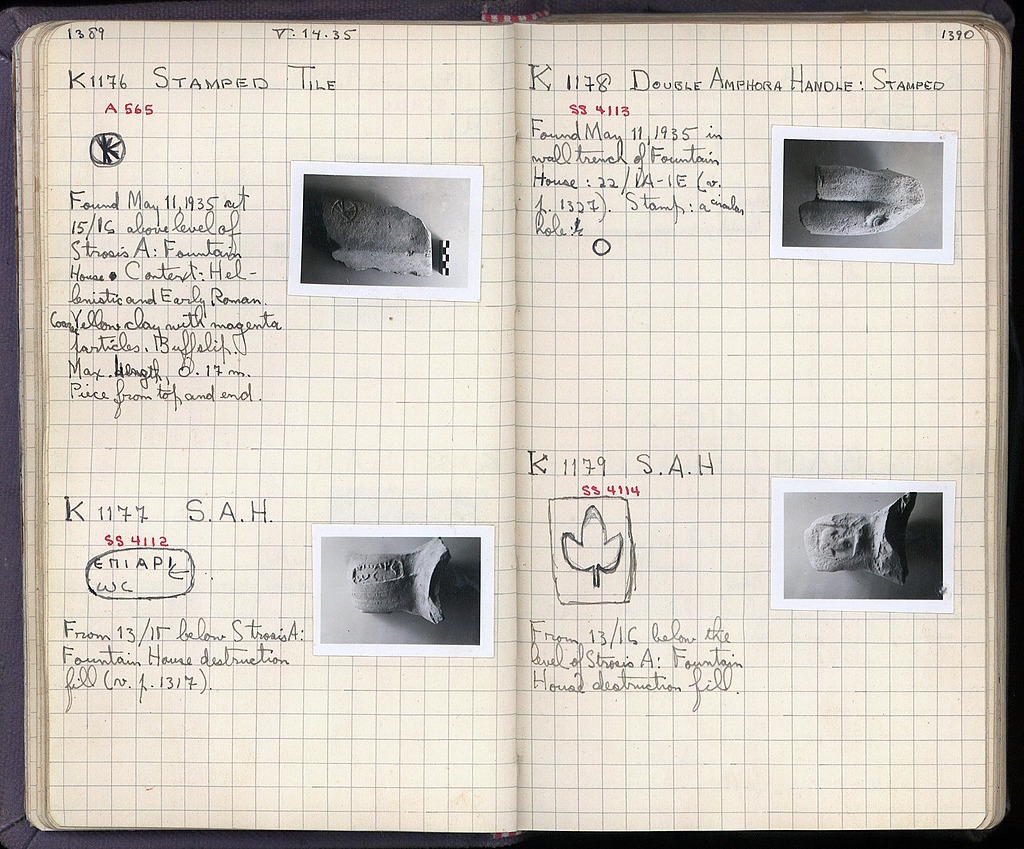 1389
V. 14.35
K 1176 STAMPED TILE
A 565
K
Found May 11, 1935 at
15/IS above level of
Strosis A: Fountain
House. Context: Hel-
lenistic and Early Roman.
Coarse Yellow clay with magenta
particles. Buff slip.
Max. Length, 0.17 m.
Piece from top and end.
K 1177 S.A.H.
SS 4112
ΕΠΙΑΡΙ
ωC
From 13/ΙΕ below Strosis A:
Fountain House destruction
fill (v. p. 1317).
1390
K 1178 DOUBLE AMPHORA HANDLE: STAMPED
SS 4113
Found May 11, 1935 in
wall trench of Fountain
House: 22/ΙΑ-ΙΕ (v.
p. 1327). Stamp: a circular
hole:
K 1179 S.A.H
SS 4114
From 13/ΙS below the
level of Strosis A: Fountain
House destruction fill.
ΕΠΙΑΡΙ
ωC